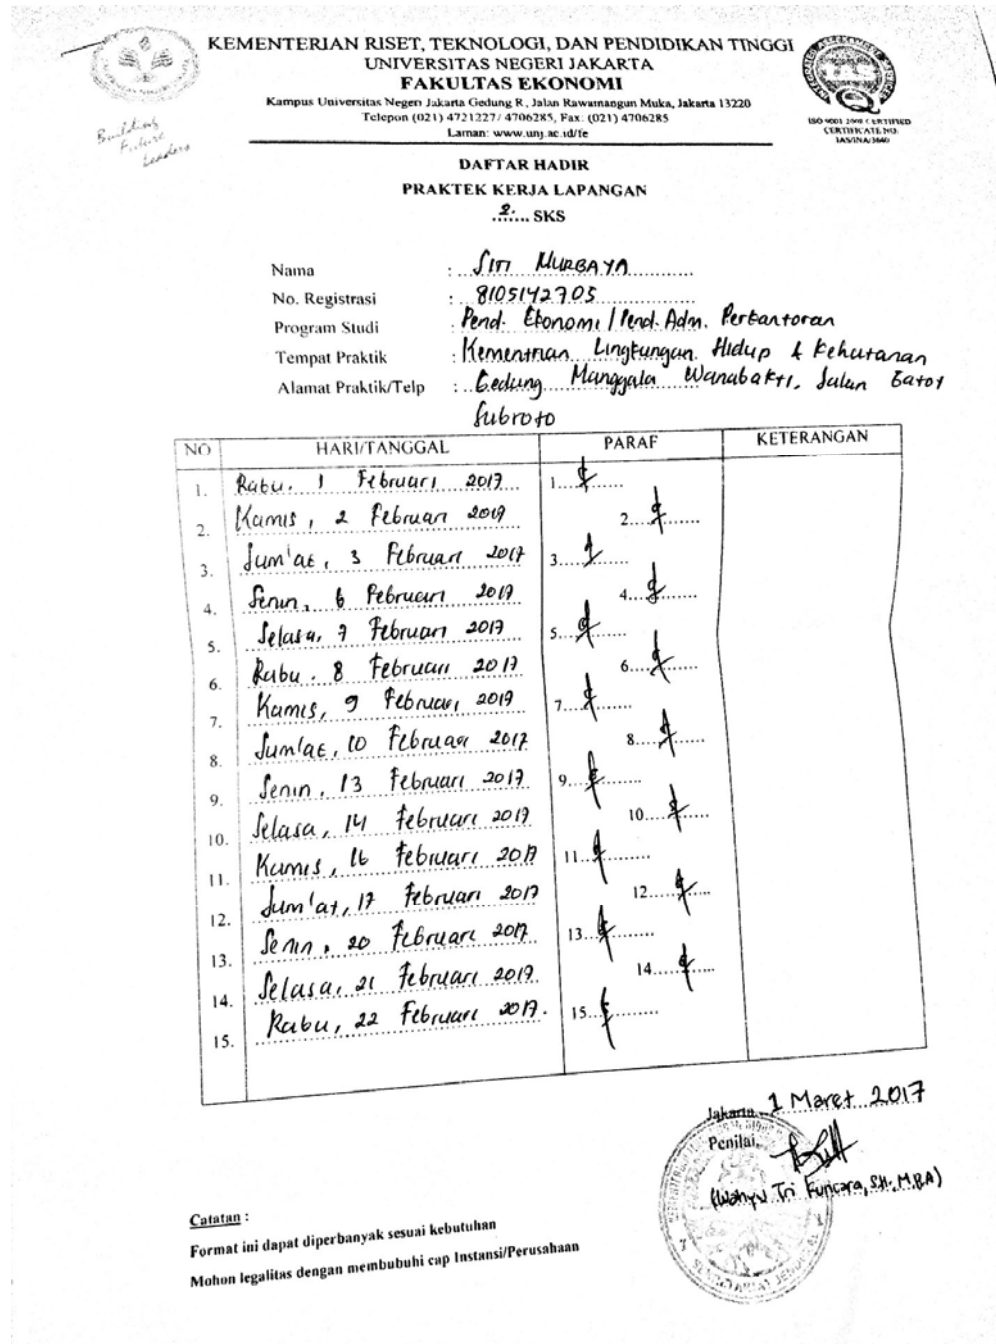 KEMENTERIAN RISET, TEKNOLOGI, DAN PENDIDIKAN TINGGI
UNIVERSITAS NEGERI JAKARTA
FAKULTAS EKONOMI
Kampus Universitas Negeri Jakarta Gedung R, Jalan Rawamangun Muka, Jakarta 13220
Telepon (021) 4721227/ 4706285, Fax: (021) 4706285
Laman: www.unj.ac.id/fe
Building
Future
Leaders
IAS
ISO 9001 2008 CERTIFIED
CERTIFICATE NO:
IAS/INA/3640
DAFTAR HADIR
PRAKTEK KERJA LAPANGAN
..2... SKS
Nama : SITI NURBAYA
No. Registrasi : 8105142705
Program Studi : Pend. Ekonomi / Pend. Adm. Perkantoran
Tempat Praktik : Kementrian Lingkungan Hidup & Kehutanan
Alamat Praktik/Telp : Gedung Manggala Wanabakti, Jalan Gatot
Subroto
NO HARI/TANGGAL PARAF KETERANGAN
1. Rabu, 1 Februari 2017 1.
2. Kamis, 2 Februari 2017 2.
3. Jum'at, 3 Februari 2017 3.
4. Senin, 6 Februari 2017 4.
5. Selasa, 7 Februari 2017 5.
6. Rabu, 8 Februari 2017 6.
7. Kamis, 9 Februari 2017 7.
8. Jum'at, 10 Februari 2017 8.
9. Senin, 13 Februari 2017 9.
10. Selasa, 14 Februari 2017 10.
11. Kamis, 16 Februari 2017 11.
12. Jum'at, 17 Februari 2017 12.
13. Senin, 20 Februari 2017 13.
14. Selasa, 21 Februari 2017 14.
15. Rabu, 22 Februari 2017. 15.
Jakarta, 1 Maret 2017
Penilai,
(Wahyu Tri Kuncara, SH., MBA)
SEKRETARIAT JENDERAL
Catatan :
Format ini dapat diperbanyak sesuai kebutuhan
Mohon legalitas dengan membubuhi cap Instansi/Perusahaan